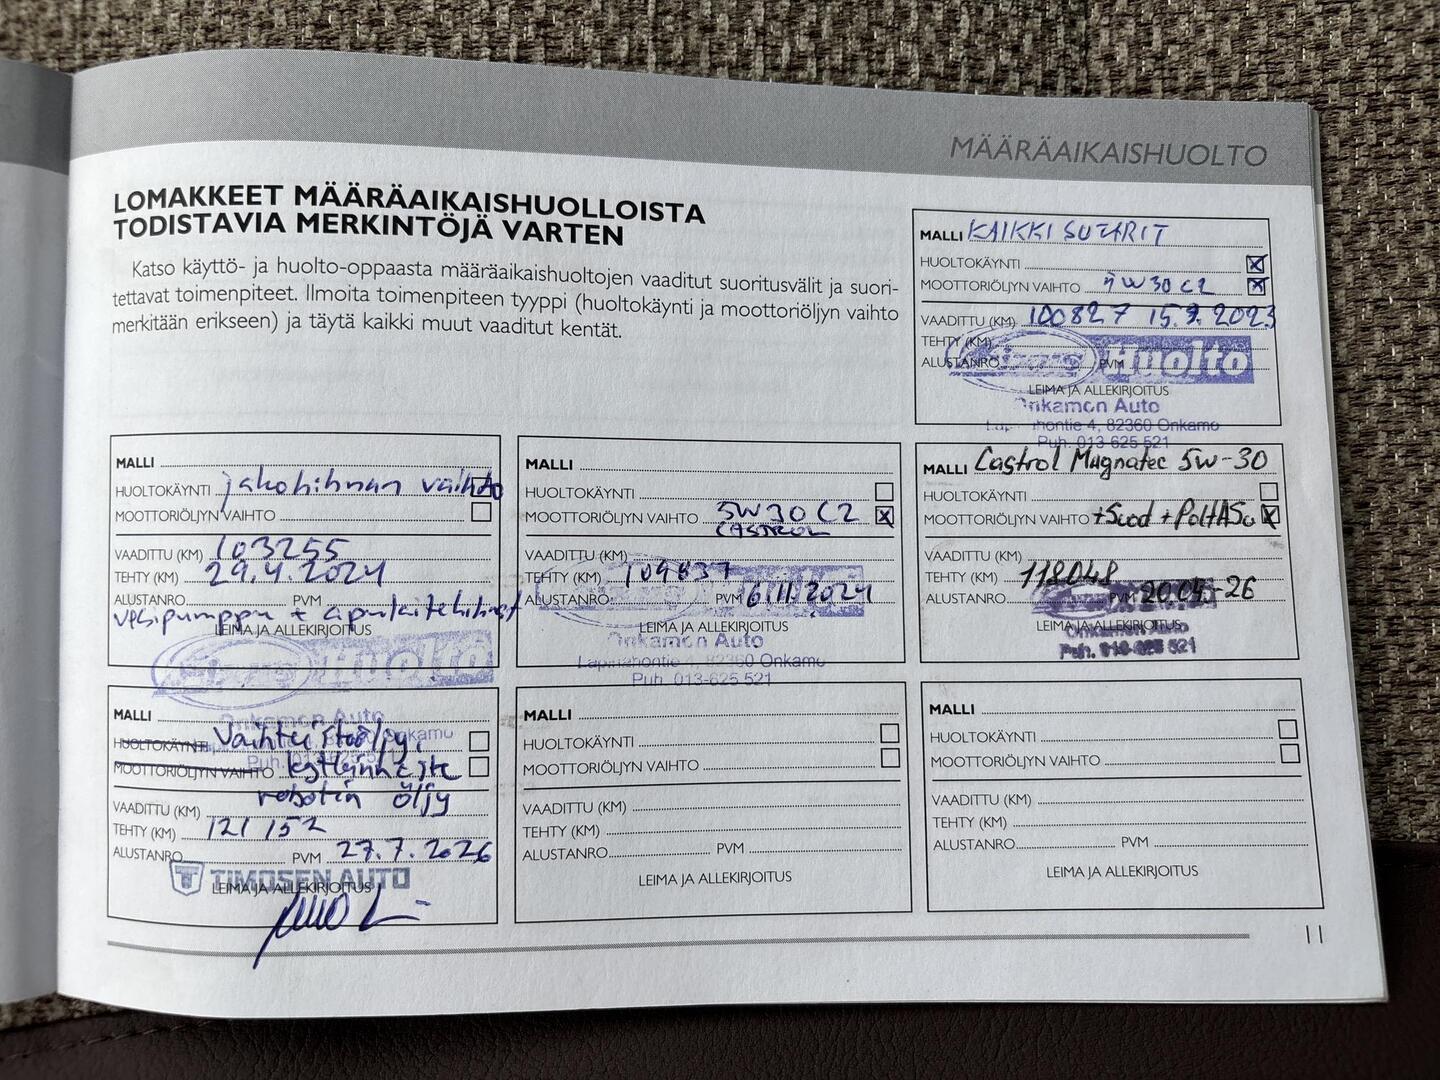 MÄÄRÄAIKAISHUOLTO
LOMAKKEET MÄÄRÄAIKAISHUOLLOISTA
TODISTAVIA MERKINTÖJÄ VARTEN
Katso käyttö- ja huolto-oppaasta määräaikaishuoltojen vaaditut suoritusvälit ja suori-
tettavat toimenpiteet. Ilmoita toimenpiteen tyyppi (huoltokäynti ja moottoriöljyn vaihto
merkitään erikseen) ja täytä kaikki muut vaaditut kentät.
MALLI KAIKKI SUTARIT
HUOLTOKÄYNTI X
MOOTTORIÖLJYN VAIHTO 5W30 C2 X
VAADITTU (KM) 100827 15.9.2023
TEHTY (KM)
ALUSTANRO PVM
Huolto
LEIMA JA ALLEKIRJOITUS
Onkamon Auto
hontie 4, 82360 Onkamo
Puh. 013 625 521
MALLI
HUOLTOKÄYNTI jakohihnan vaihto
MOOTTORIÖLJYN VAIHTO
VAADITTU (KM) 103255
TEHTY (KM) 29.4.2024
ALUSTANRO PVM
vesipumppu + apulaitehihnat
LEIMA JA ALLEKIRJOITUS
Huolto
Onkamon Auto
Onkamo
Puh.
MALLI
HUOLTOKÄYNTI
MOOTTORIÖLJYN VAIHTO 5W30 C2 X
CASTROL
VAADITTU (KM)
TEHTY (KM) 109837
ALUSTANRO PVM 6.11.2024
LEIMA JA ALLEKIRJOITUS
Onkamon Auto
Lapinahontie 4, 82360 Onkamo
Puh. 013-625 521
MALLI Castrol Magnatec 5W-30
HUOLTOKÄYNTI
MOOTTORIÖLJYN VAIHTO +Suod + PoltASu X
VAADITTU (KM)
TEHTY (KM) 118048
ALUSTANRO PVM 20.04.-26
LEIMA JA ALLEKIRJOITUS
Onkamon Auto
Puh. 013-625 521
MALLI
HUOLTOKÄYNTI Vaihteistoöljy,
MOOTTORIÖLJYN VAIHTO kytkinneste
robotin öljy
VAADITTU (KM)
TEHTY (KM) 121 152
ALUSTANRO PVM 27.7.2026
TIMOSEN AUTO
LEIMA JA ALLEKIRJOITUS
MALLI
HUOLTOKÄYNTI
MOOTTORIÖLJYN VAIHTO
VAADITTU (KM)
TEHTY (KM)
ALUSTANRO PVM
LEIMA JA ALLEKIRJOITUS
MALLI
HUOLTOKÄYNTI
MOOTTORIÖLJYN VAIHTO
VAADITTU (KM)
TEHTY (KM)
ALUSTANRO PVM
LEIMA JA ALLEKIRJOITUS
11